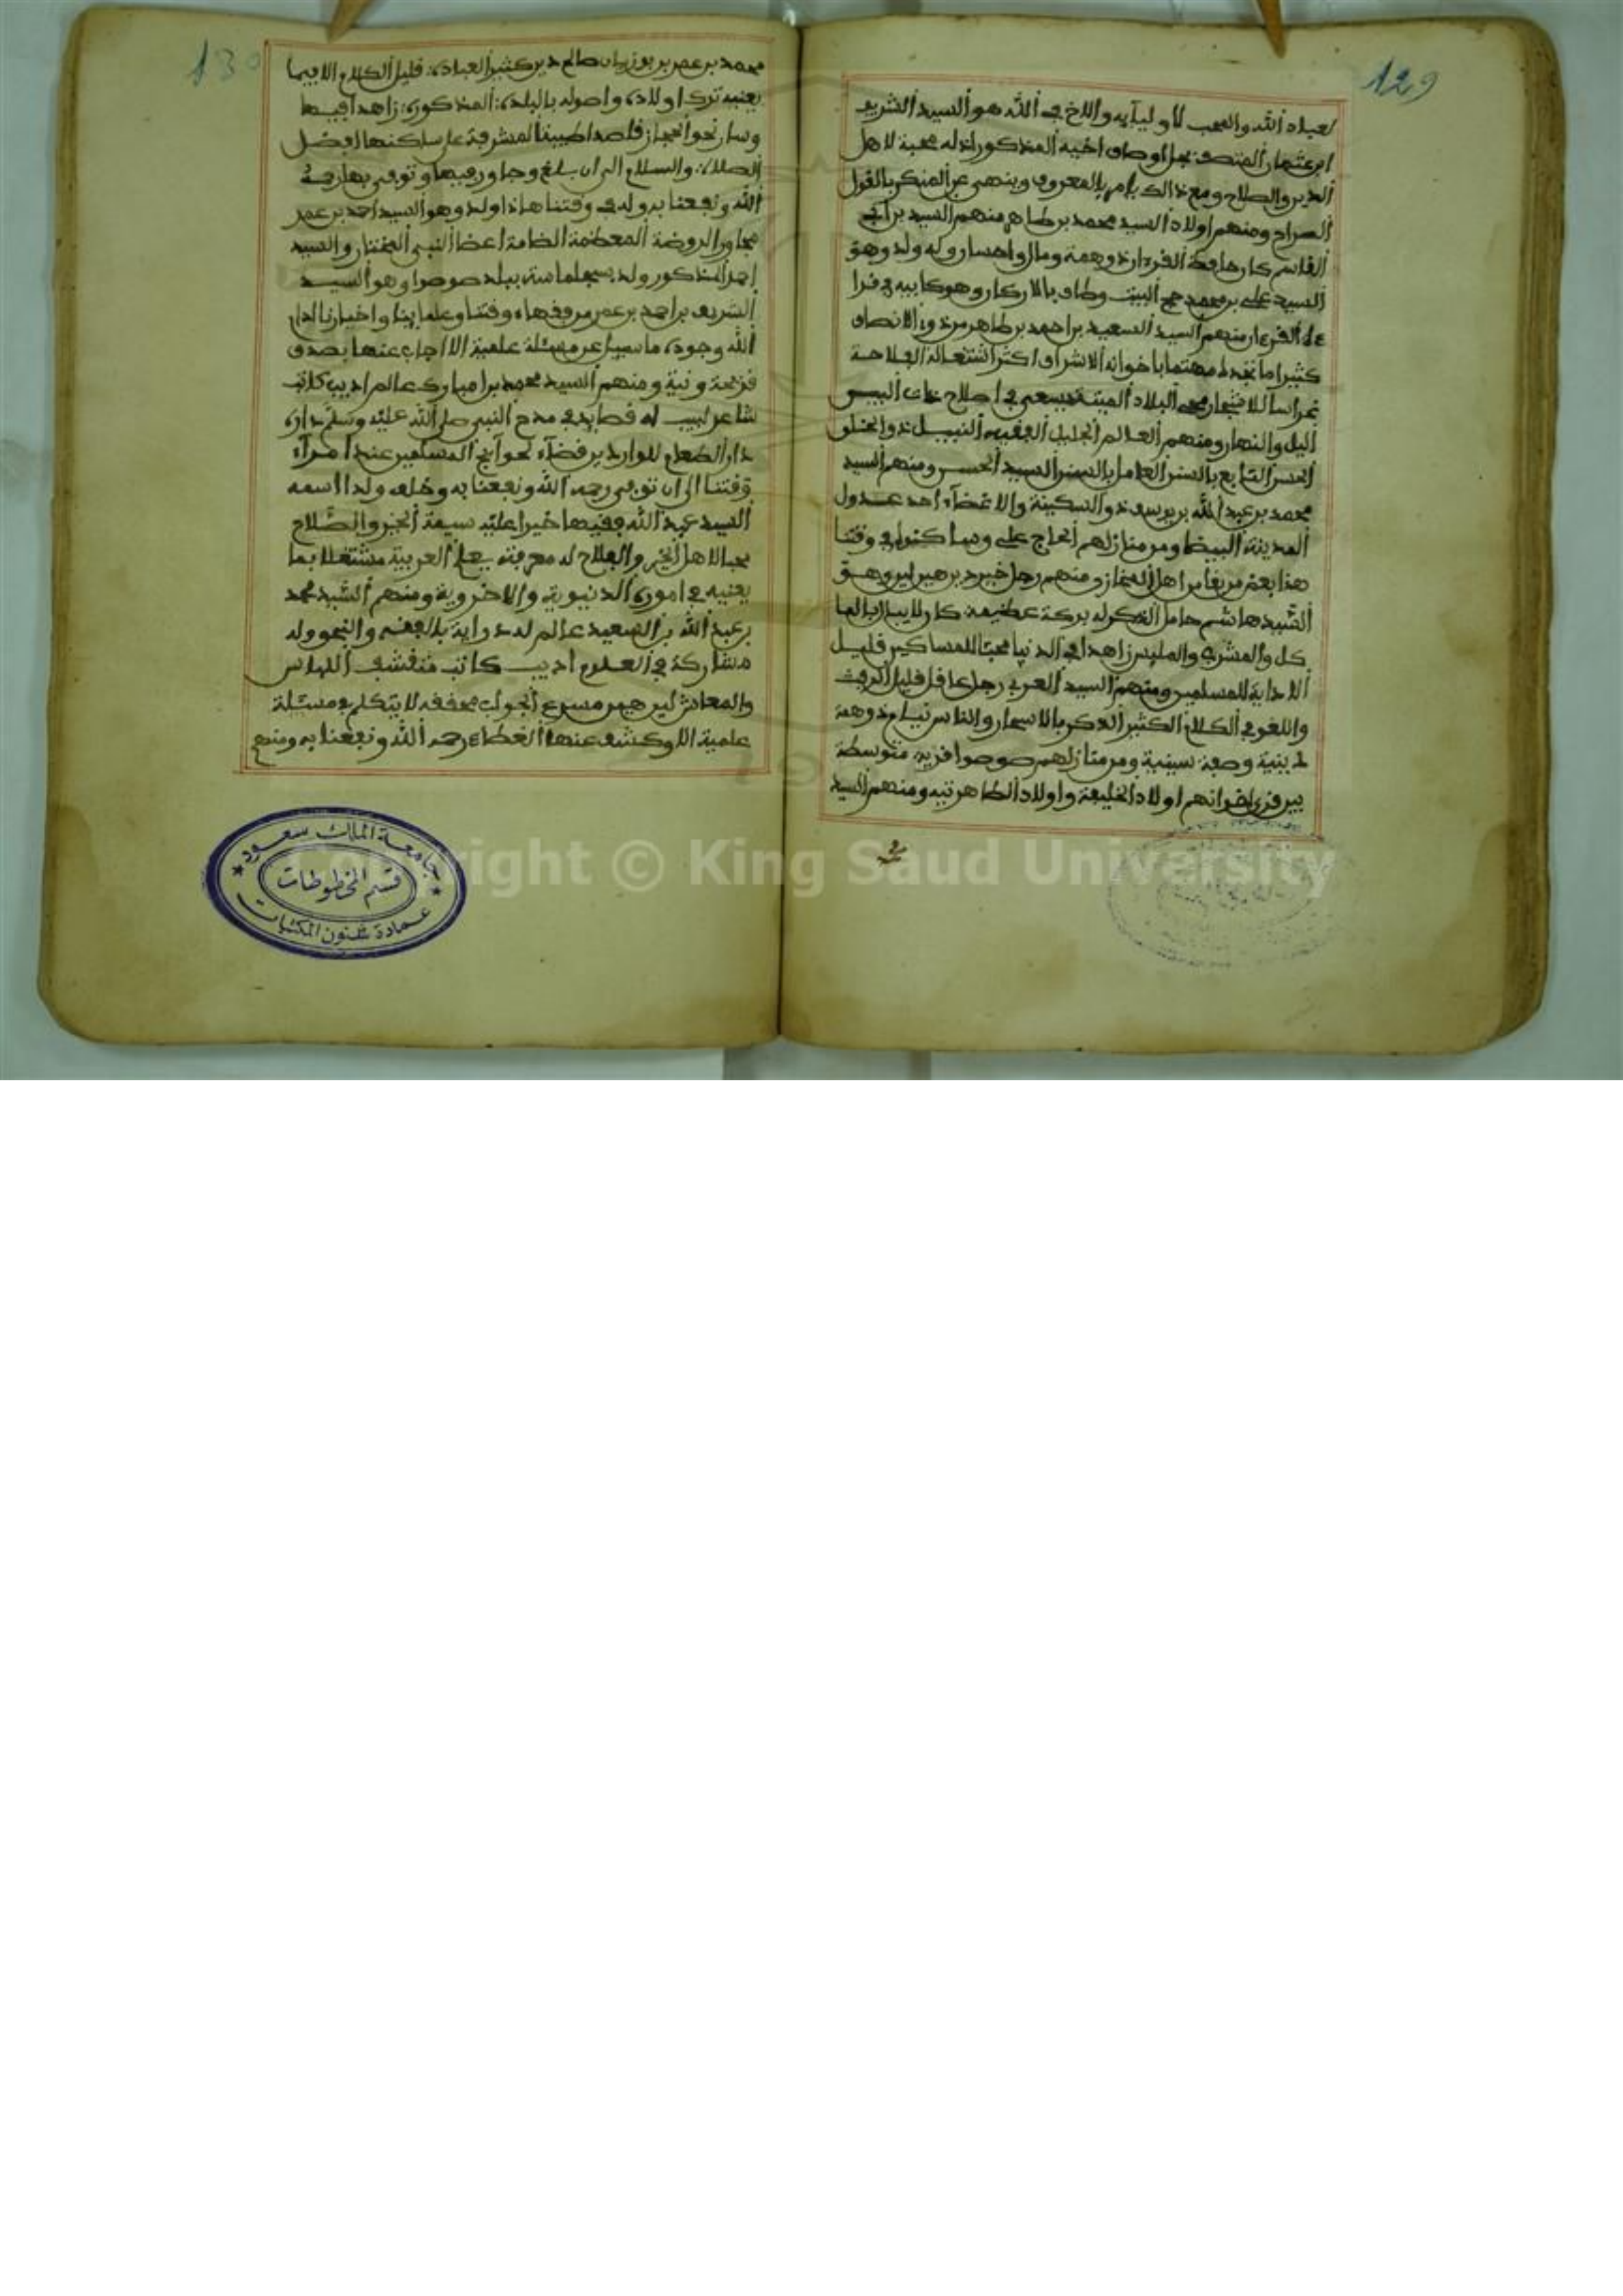 129
لعباد الله والمحب لأوليآيه والاخ في الله هو السيد الشريف
ابن عثمان المتصف بجل اوصاف اخيه المذكور اذ له محبة لاهل
الدين والصلاح ومع ذالك يامر بالمعروف وينهى عن المنكر بالقول
الصراح ومنهم اولاد السيد محمد بن طاهر منهم السيد بن ابي
القاسم كان حافظ القرءان ذو همة ومال واحسان وله ولد وهو
السيد علي بن محمد حج البيت وطاف بالاركان وهو كابيه في قرا
ءة القرءان منهم السيد السعيد بن احمد بن طاهر من ذوي الانصاف
كثيرا ما تجده مهتما باخوانه الاشراف اكثر اشتغاله الفلاحة
غراسا للاشجار محي البلاد الميتة يسعى في اصلاح ذات البين
اليل والنهار ومنهم العالم الجليل الفقيه النبيل ذو الخلق
الحسن التابع بالسنن العامل بالسنن السيد الحسن ومنهم السيد
محمد بن عبد الله بن يوسف ذو السكينة والاغضآء احد عدول
المدينة البيضا ومن منازلهم الحاج علي وساكنوه في وقتنا
هذا بعض من بقايا اهل المجاز ومنهم رجل خير دين هين لين وهو
السيد هاشم حامل الذكر له بركة عظيمة كان لا يبالي بالما
كل والمشرب والملبس زاهدا في الدنيا محبا للمساكين قليل
الاذاية للمسلمين ومنهم السيد العربي رجل عاقل قليل الرفث
واللغو في الكلام الكثير الذكر بالاسحار والناس نيام ذو همة
ومن منازلهم صوصوا قرية متوسطة
بين قرى اخوانهم اولاد الخليفة واولاد الطاهر تيه ومنهم السيد
130
محمد بن عمر بن بوزيان صالح دين كثير العبادة قليل الكلام الا فيما
يعنيه ترك اولاده واصوله بالبلدة المذكورة زاهدا فيها
وسار نحو الحجاز قاصدا طيبة المشرفة على ساكنها افضل
الصلاة والسلام الى ان بلغ وجاور فيها وتوفي بها رحمه
الله ونفعنا به وله في وقتنا هاذا ولد وهو السيد احمد بن عمر
مجاور الروضة المعظمة النبي المختار والسيد
احمد المذكور ولد بسجلماسة ببلد صوصوا وهو السيد
الشريف بن احمد بن عمر من فقهاء وقتنا وعلماينا واخيارنا ادام
الله وجوده ما سيل عن مسئلة علمية الا اجاب عنها بصدق
قريحة ونية ومنهم السيد محمد بن امبارك عالم اديب كاتب
شاعر لبيب له قصايد في مدح النبي صلى الله عليه وسلم داره
دار الطعام للواردين قضآء لحوآيج المسلمين عند امرآء
وقتنا الى ان توفي رحمه الله ونفعنا به وخلف ولدا اسمه
السيد عبد الله فقيها خيرا عليه سيمة الخير والصلاح
محبا لاهل الخير والفلاح له معرفة بعلم العربية مشتغلا بما
يعنيه في اموره الدنيوية والاخروية ومنهم السيد محمد
بن عبد الله بن السعيد عالم له دراية بالفقه والنحو وله
مشاركة في العلوم اديب كاتب متقشف اللباس
والمعاش لين هين مسرع الجواب محققه لا يتكلم في مسئلة
علمية الا وكشف عنها الغطاء رحمه الله ونفعنا به ومنهم
جامعة الملك سعود
قسم المخطوطات
عمادة شئون المكتبات
Copyright © King Saud University